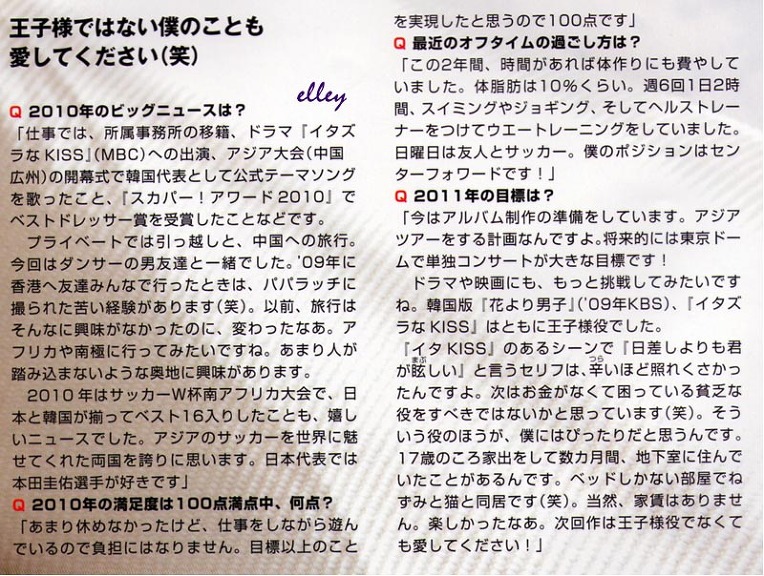 王子様ではない僕のことも
愛してください(笑)
elley
Q 2010年のビッグニュースは?
「仕事では、所属事務所の移籍、ドラマ『イタズ
ラなKISS』(MBC)への出演、アジア大会(中国
広州)の開幕式で韓国代表として公式テーマソング
を歌ったこと、『スカパー!アワード2010』で
ベストドレッサー賞を受賞したことなどです。
プライベートでは引っ越しと、中国への旅行。
今回はダンサーの男友達と一緒でした。'09年に
香港へ友達みんなで行ったときは、パパラッチに
撮られた苦い経験があります(笑)。以前、旅行は
そんなに興味がなかったのに、変わったなあ。ア
フリカや南極に行ってみたいですね。あまり人が
踏み込まないような奥地に興味があります。
2010年はサッカーW杯南アフリカ大会で、日
本と韓国が揃ってベスト16入りしたことも、嬉し
いニュースでした。アジアのサッカーを世界に魅
せてくれた両国を誇りに思います。日本代表では
本田圭佑選手が好きです」
Q 2010年の満足度は100点満点中、何点?
「あまり休めなかったけど、仕事をしながら遊ん
でいるので負担にはなりません。目標以上のこと
を実現したと思うので100点です」
Q 最近のオフタイムの過ごし方は?
「この2年間、時間があれば体作りにも費やして
いました。体脂肪は10%くらい。週6回1日2時
間、スイミングやジョギング、そしてヘルストレー
ナーをつけてウエートレーニングをしていました。
日曜日は友人とサッカー。僕のポジションはセン
ターフォワードです!」
Q 2011年の目標は?
「今はアルバム制作の準備をしています。アジア
ツアーをする計画なんですよ。将来的には東京ドー
ムで単独コンサートが大きな目標です!
ドラマや映画にも、もっと挑戦してみたいです
ね。韓国版『花より男子』('09年KBS)、『イタズ
ラなKISS』はともに王子様役でした。
『イタKISS』のあるシーンで『日差しよりも君
が眩しい』と言うセリフは、辛いほど照れくさかっ
たんですよ。次はお金がなくて困っている貧乏な
役をすべきではないかと思っています(笑)。そう
いう役のほうが、僕にはぴったりだと思うんです。
17歳のころ家出をして数カ月間、地下室に住んで
いたことがあるんです。ベッドしかない部屋でね
ずみと猫と同居です(笑)。当然、家賃はありませ
ん。楽しかったなあ。次回作は王子様役でなくて
も愛してください!」